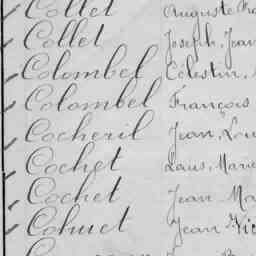 Collet Auguste
Collet Joseph, Jean
Colombel Célestin,
Colombel François
Cocheril Jean, Lou
Cochet Laus, Marie
Cochet Jean Ma
Cohuet Jean Vic